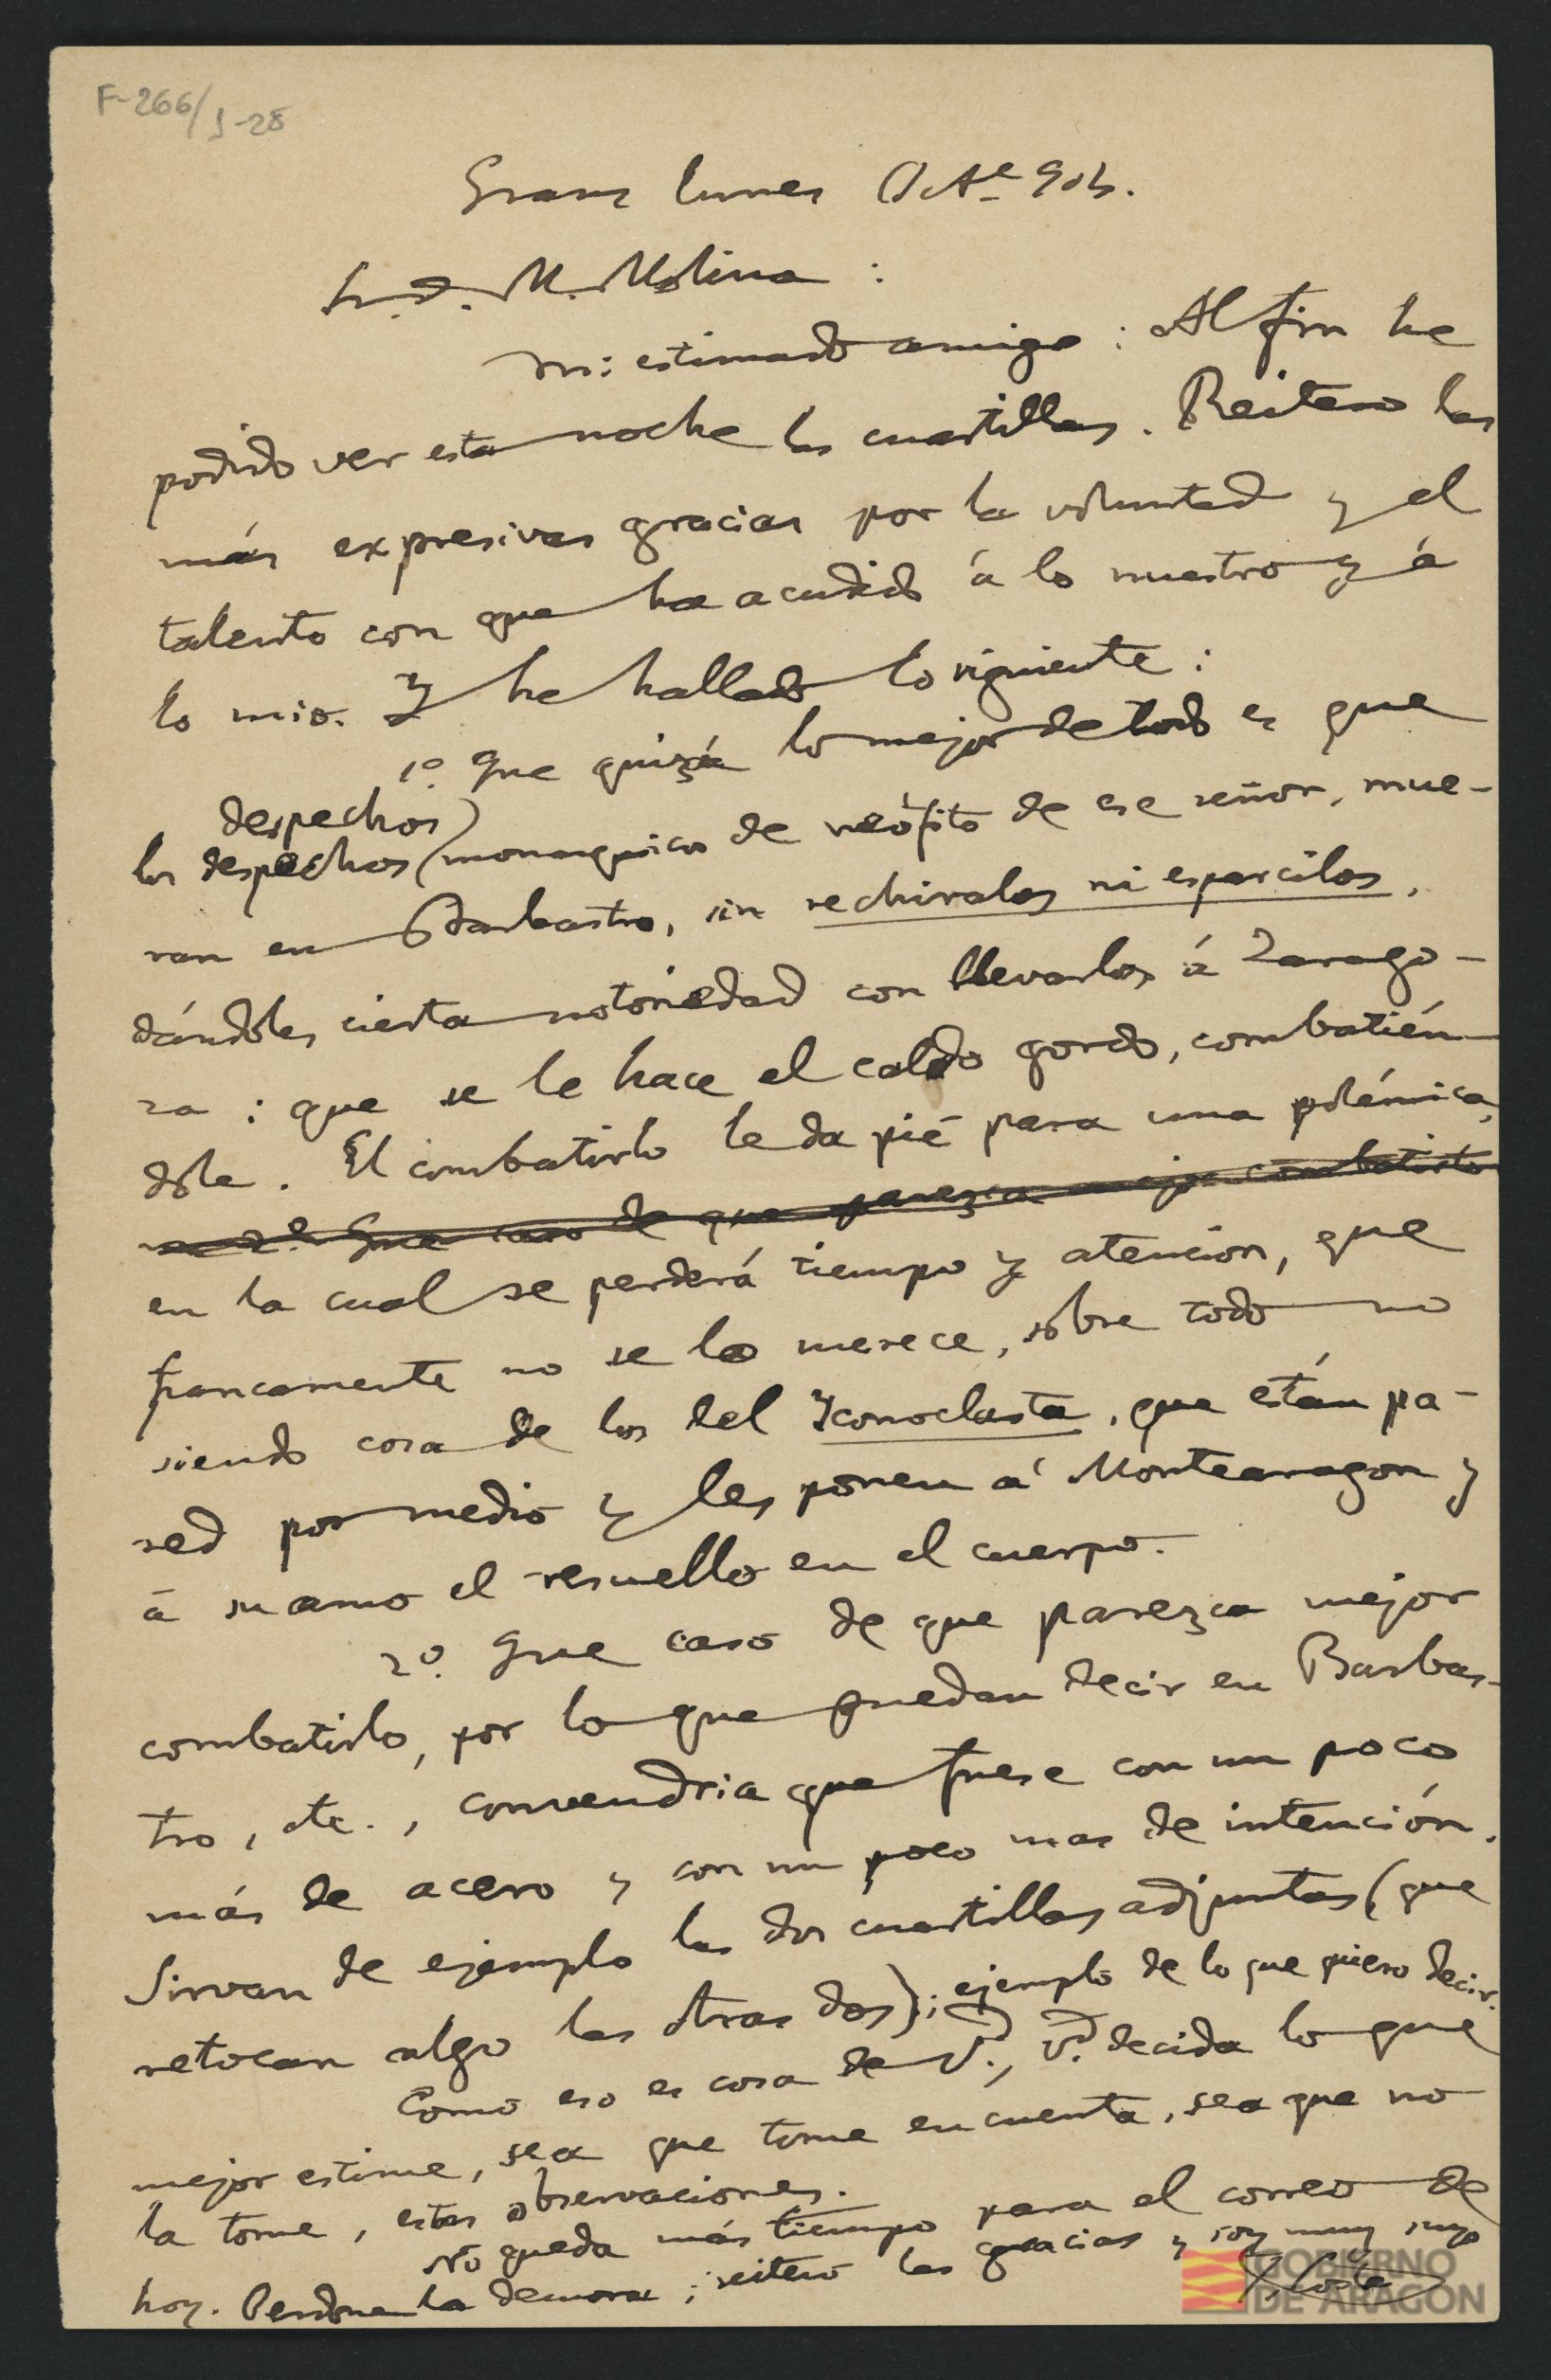 F-266/1-28
Graus lunes Oct.e 904.
Sr. D. M. Molina :
Mi estimado amigo : Al fin he
podido ver esta noche las cuartillas. Reitero las
más expresivas gracias por la voluntad y el
talento con que ha acudido á lo nuestro y á
lo mio. Y he hallado lo siguiente :
1º. Que quizá lo mejor de todo es que
despechos)
los despechos (monarquicos de neófito de ese señor, mue-
ran en Barbastro, sin rechiralos ni esparcilos,
dándoles cierta notoriedad con llevarlos á Zarago-
za : que se le hace el caldo gordo, combatién-
dole. El combatirlo le da pié para una polémica,
2º. Que caso de que parezca mejor combatirlo
en la cual se perderá tiempo y atencion, que
francamente no se lo merece, sobre todo no
siendo cosa de los del Yconoclasta, que están pa-
red por medio y les ponen á Montearagon y
á su amo el resuello en el cuerpo.
2º. Que caso de que parezca mejor
combatirlo, por lo que puedan decir en Barbas-
tro, etc., convendria que fuese con un poco
más de acero y con un poco mas de intención.
Sirvan de ejemplo las dos cuartillas adjuntas (que
retocan algo las otras dos); ejemplo de lo que quiero decir.
Como eso es cosa de Vd., Vd. decida lo que
mejor estime, sea que tome en cuenta, sea que no
la tome, estas observaciones.
No queda más tiempo para el correo de
hoy. Perdone la demora; reitero las gracias y soy muy suyo
J. Costa
GOBIERNO
DE ARAGON